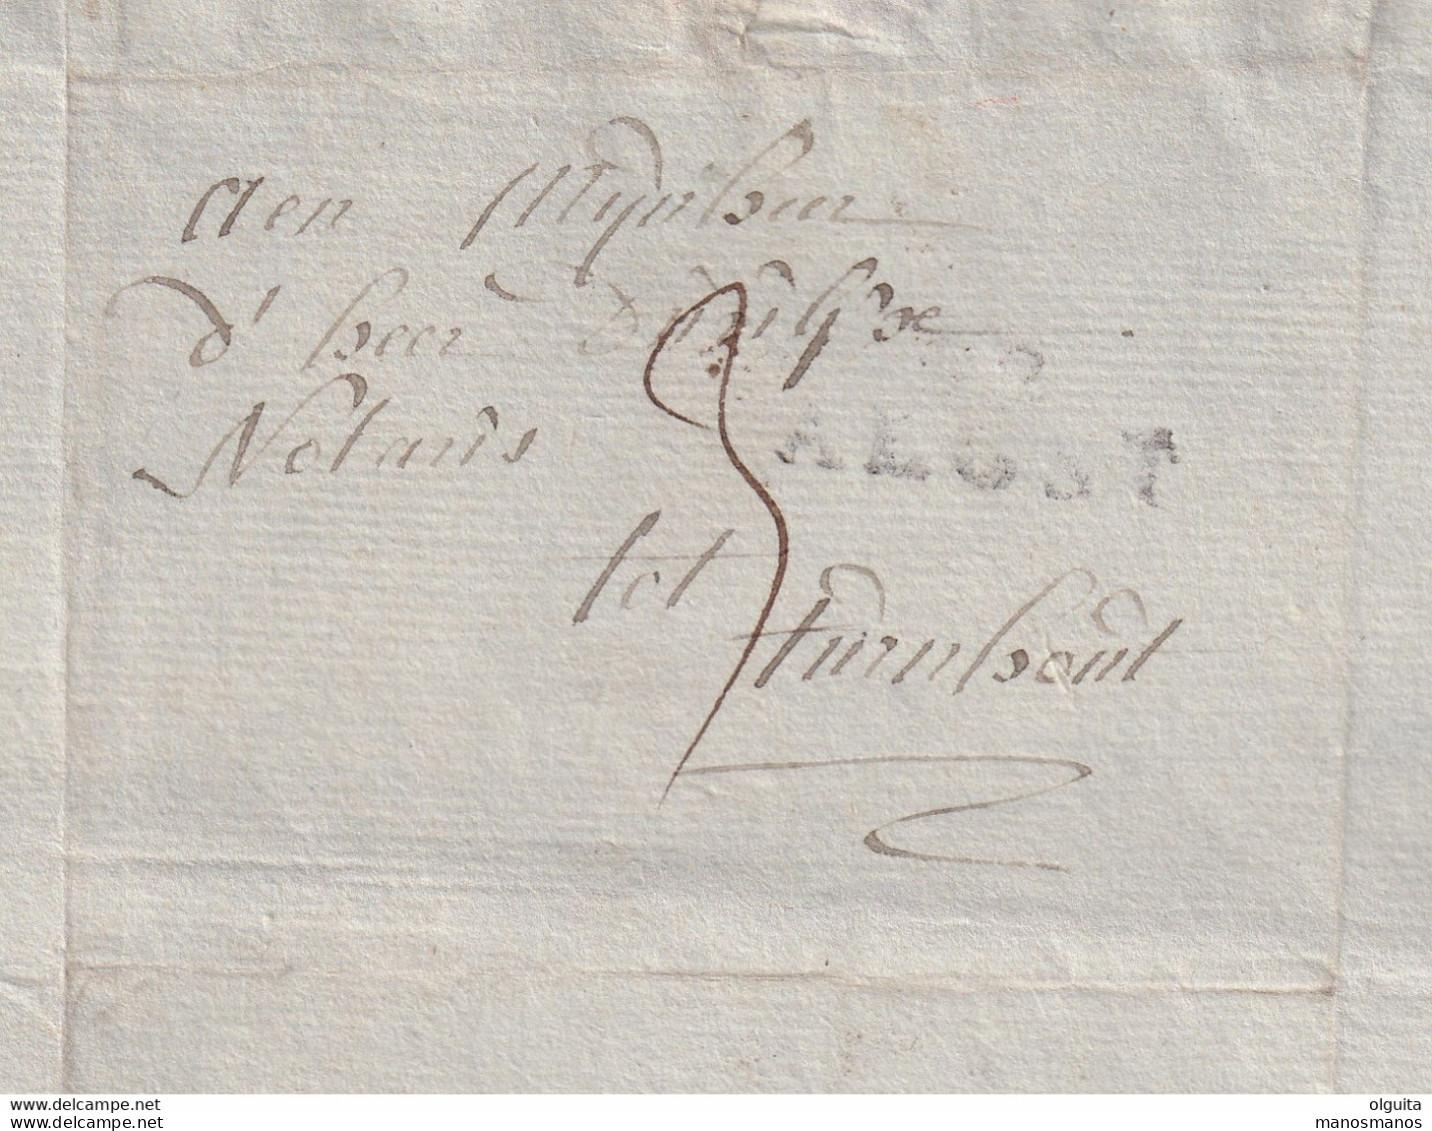 Aen Mynheer
d'heer
Notaris
ALOST
tot
turnhout
3
www.delcampe.net
olguita
manosmanos